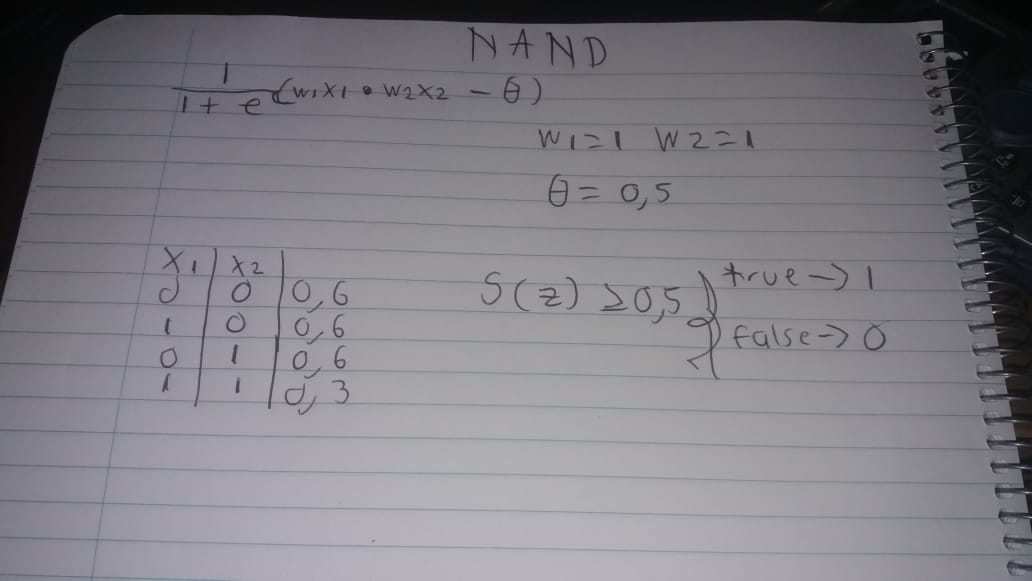 NAND
1
1 + e(w1x1 • w2x2 - θ)
W1=1 W2=1
θ = 0,5
X1 | x2 |
0 | 0 | 0,6
1 | 0 | 0,6
0 | 1 | 0,6
1 | 1 | 0,3
S(z) ≥0,5 } true -> 1
false -> 0